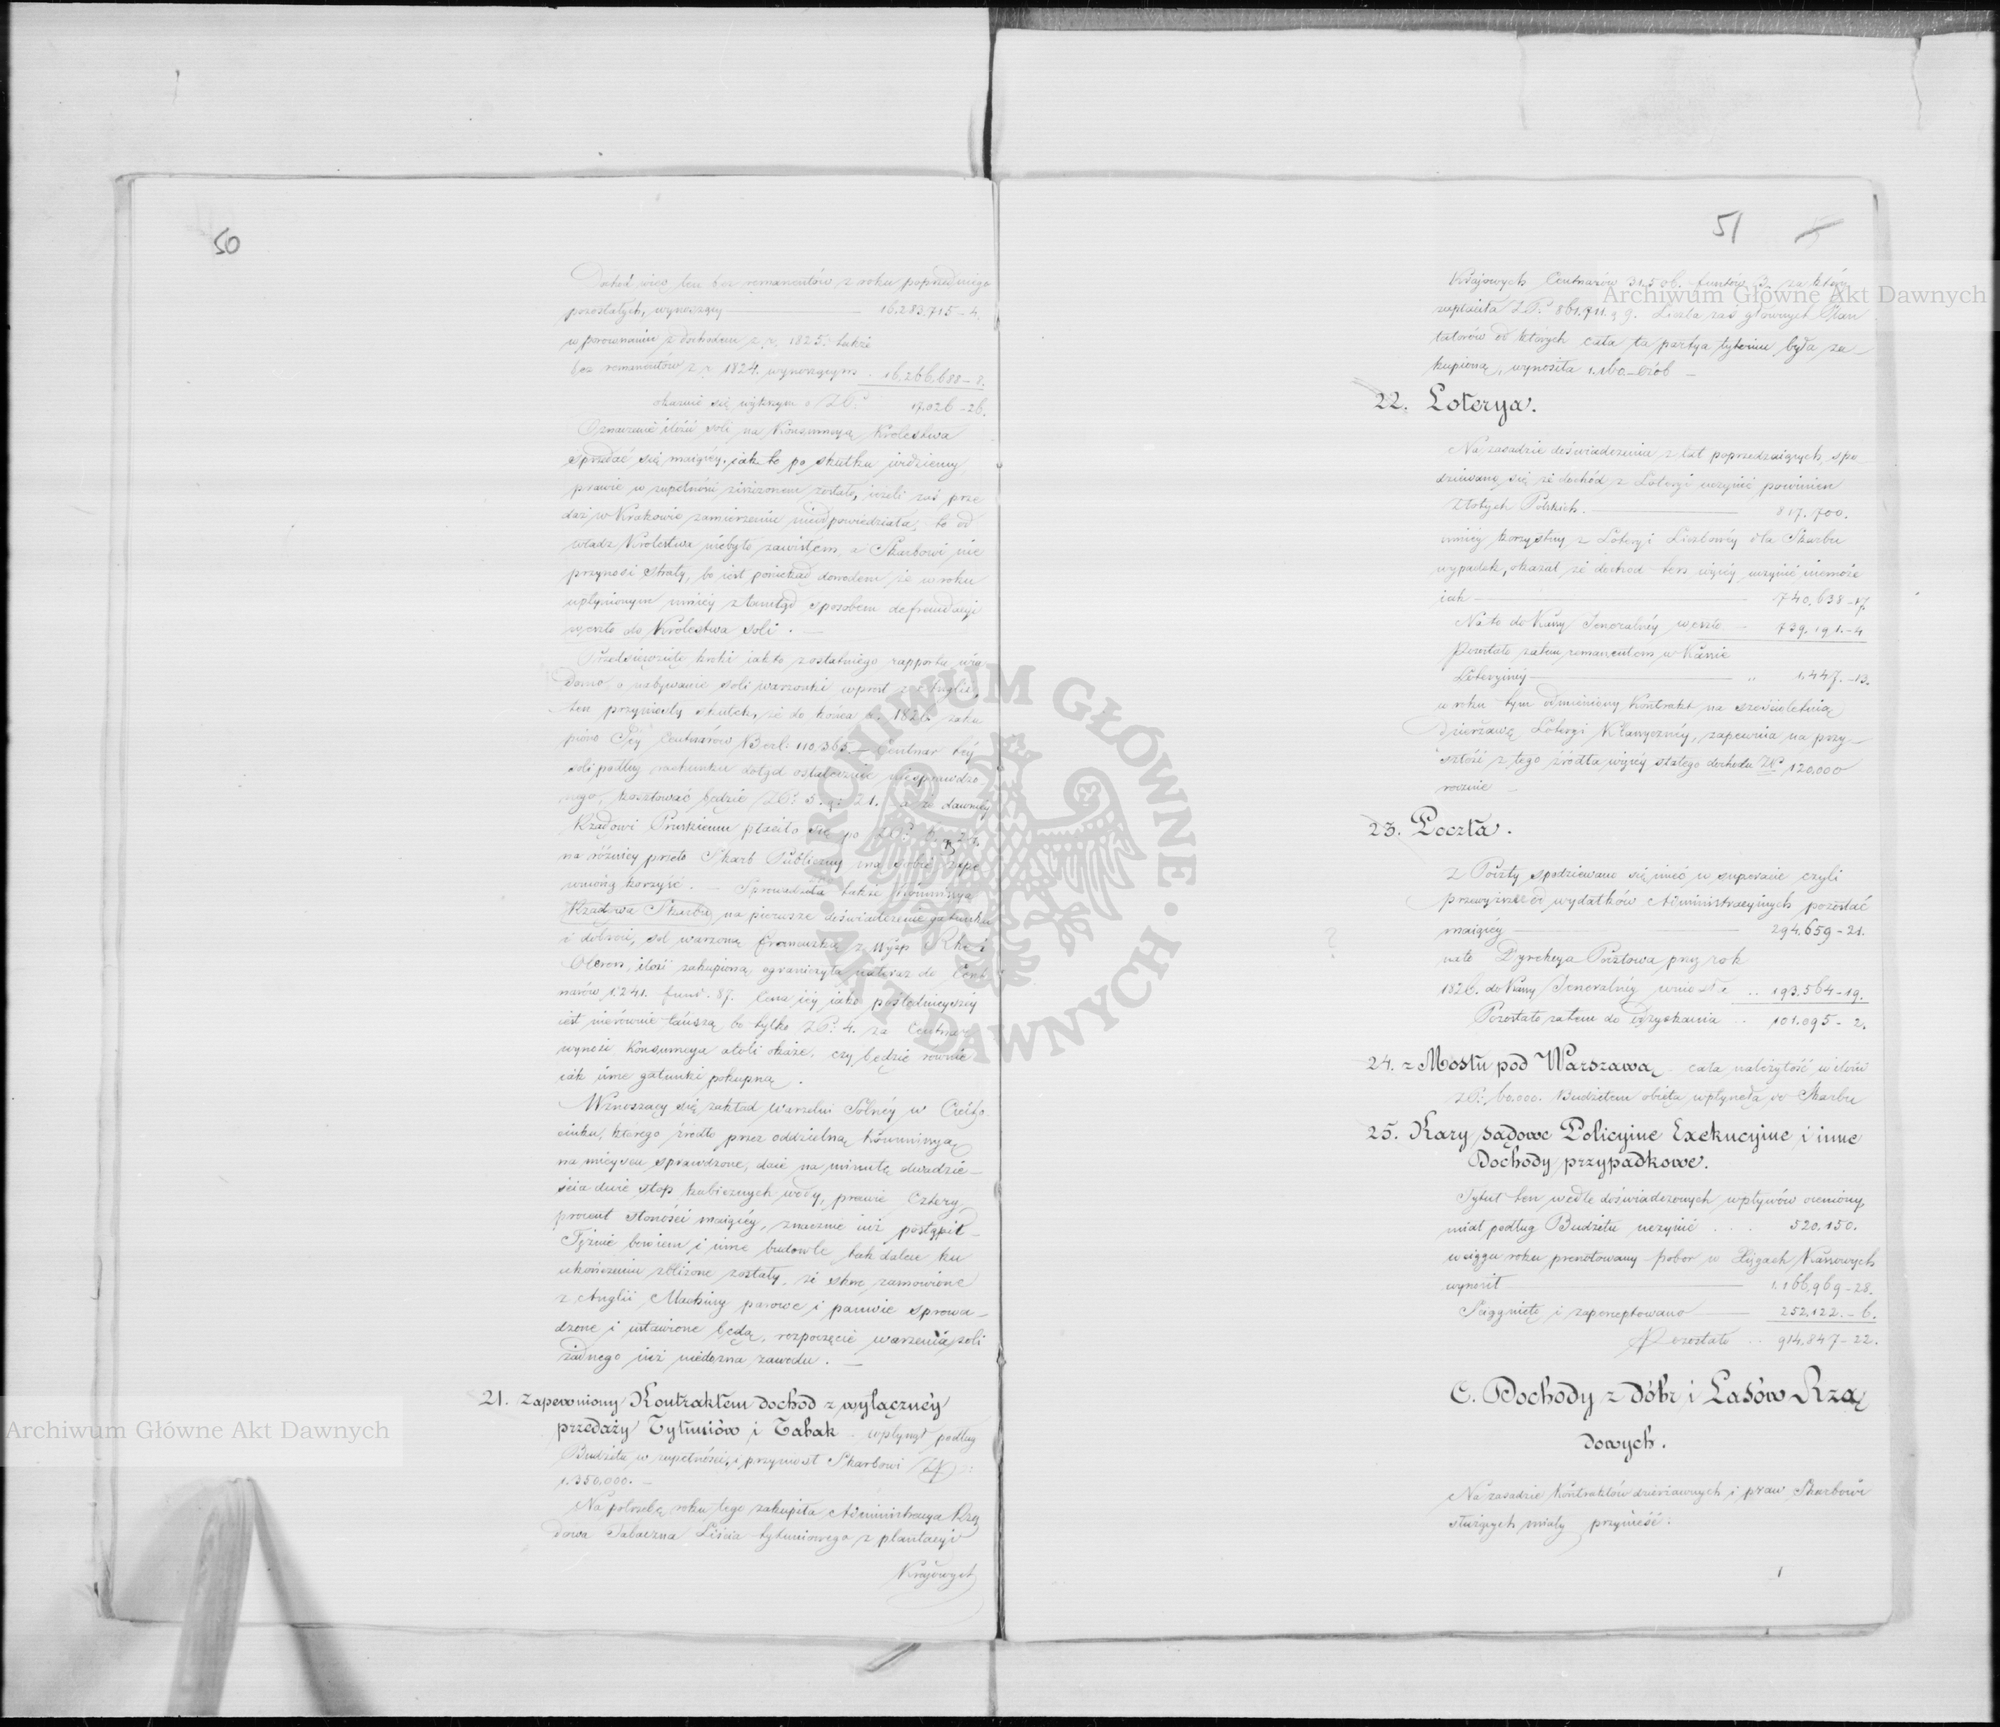 50
Dochód więc ten bez remanentów z roku poprzedniego
pozostałych, wynoszący 16.283.715-4.
w porównaniu z dochodem z r. 1825. także
bez remanentów z r. 1824. wynoszącym 16,266,688-8.
okazuie się większym o ZłP. 17.026-26.
Oznaczenie ilości soli na Konsumcyą Królestwa
sprzedać się maiącéy, iak to po skutku widziemy
prawie w zupełności ziszczonem zostało, ieżeli zaś prze
daż w Krakowie zamierzeniu nieodpowiedziała, to od
władz Królestwa niebyło zawisłem, a Skarbowi nie
przynosi straty, bo iest poniekąd dowodem że w roku
upłynionym mniéy ztamtąd sposobem defraudacyi
weszło do Królestwa soli. —
Przedsięwzięte kroki iak to z ostatniego rapportu wia
domo, o nabywanie soli warzonki wprost z Anglii,
ten przyniosły skutek, że do końca r. 1826. zaku
piono Jéy Centnarów Berl: 110,365.— Centnar téy
soli podług rachunku dotąd ostatecznie niesprawdzo
nego, kosztować będzie ZłP. 5. gr 21. a że dawniéy
Rządowi Pruskiemu płaciło się po ZłP.
na różnicy przeto Skarb Publiczny ma sobie zape
wnioną korzyść. — Sprowadziła także Kommissya
Rządowa Skarbu, na pierwsze doświadczenie gatunku
i dobroci, sól warzoną francuzką z Wysp Rhe i
Oleron, ilość zakupioną ograniczyła nateraz do Cent
narów 1.241. funt. 87. Cena iéy iako pośledniéyszéy
iest nierównie tańszą bo tylko ZłP. 4. za Centnar
wynosi Konsumcya atoli okaże, czy będzie równie
iak inne gatunki pokupną.
Wznoszący się zakład Warzelni Solnéy w Ciecho
cinku, którego źródło przez oddzielną Kommissyą
na mieyscu sprawdzone, daie na minutę dwadzie-
ścia dwie stóp kubicznych wody, prawie Cztery
procent słoności maiącéy, znacznie iuż postąpił—
Tężnie bowiem i inne budowle tak dalece ku
ukończeniu zbliżone zostały, że skoro zamówione
z Anglii Machiny parowe i panwie sprowa-
dzone i ustawione będą, rozpoczęcie warzenia soli
żadnego iuż niedozna zawodu. —
21. Zapewniony Kontraktem dochod z wyłącznéy
przedaży Tytuniów i Tabak - wpłynął podług
Budżetu w zupełności i przyniósł Skarbowi ZłP:
1.350,000. —
Na potrzebę roku tego zakupiła Administracya Rzą
dowa Tabaczna Liścia tytuniowego z plantacyi
Kraiowych
51
Kraiowych Centnarów 31,506. funtów 3. za który
zapłaciła ZłP. 861.911. g 9. Liczba zaś głównych Plan
tatorów od których cała ta partya tytoniu była za-
kupioną, wynosiła 1.160 osób —
22. Loterya.
Na zasadzie doświadczenia z lat poprzedzaiących, spo
dziewano się że dochód z Loteryi uczynić powinien
Złotych Polskich. 817.700.
mniéy korzystny z Loteryi Liczbowéy dla Skarbu
wypadek, okazał że dochod ten więcéy uczynić niemoże
iak 740,638-17.
Na to do Kassy Jeneralnéy weszło 739,191.-4
Pozostało zatem remanentem w Kassie
Loteryinéy " 1,447.-13.
w roku tym odmieniony Kontrakt na sześcioletnią
dzierżawę Loteryi Klassycznéy, zapewnia na przy-
szłość z tego źródła więcéy stałego dochodu ZłP 120,000
rocznie —
23. Poczta.
Z Poczty spodziewano się mieć w superacie czyli
przewyżkę od wydatków Administracyinych pozostać
maiącéy 294.659-21.
na to Dyrekcya Pocztowa przez rok
1826. do Kassy Jeneralnéy wniosła .. 193.564-19.
Pozostało zatem do odzyskania .. 101.095-2.
24. z Mostu pod Warszawą - cała należytość w ilości
ZłP. 60.000. Budżetem objęta wpłynęła do Skarbu
25. Kary sądowe Policyine Exekucyine i inne
Dochody przypadkowe.
Tytuł ten wedle doświadczonych wpływów oceniony
miał podług Budżetu uczynić .... 520,150.
w ciągu roku prenotowany pobor w Xięgach Kassowych
wynosił 1.166,969-28.
Ściągnięto i zaperceptowano 252.122.-6.
Pozostało .. 914,847-22.
C. Dochody z dóbr i Lasów Rzą
dowych.
Na zasadzie Kontraktów dzierżawnych i praw Skarbowi
służących miały przynieść:
Archiwum Główne Akt Dawnych
Archiwum Główne Akt Dawnych
ARCHIWUM GŁÓWNE AKT DAWNYCH